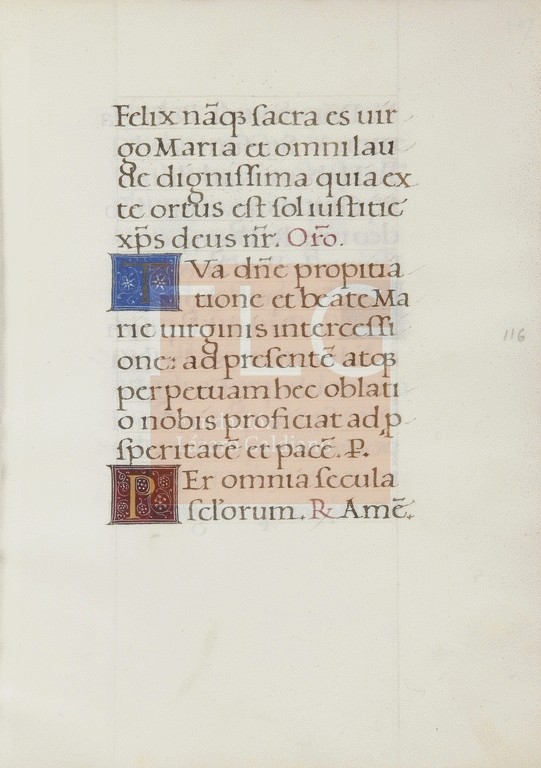 Felix nãqȝ sacra es uir
go Maria et omni lau
de dignissima quia ex
te ortus est sol iustitie
xp̃s deus nr̃. Orõ.
TVa dñe propitia
tione et beate Ma
rie uirginis intercessi
one: ad presentẽ atqȝ
perpetuam hec oblati
o nobis proficiat ad ꝓ
speritatẽ et pacẽ. P.
PEr omnia secula
sclorum. ℞ Amẽ.
116
FLG
Lázaro Galdiano